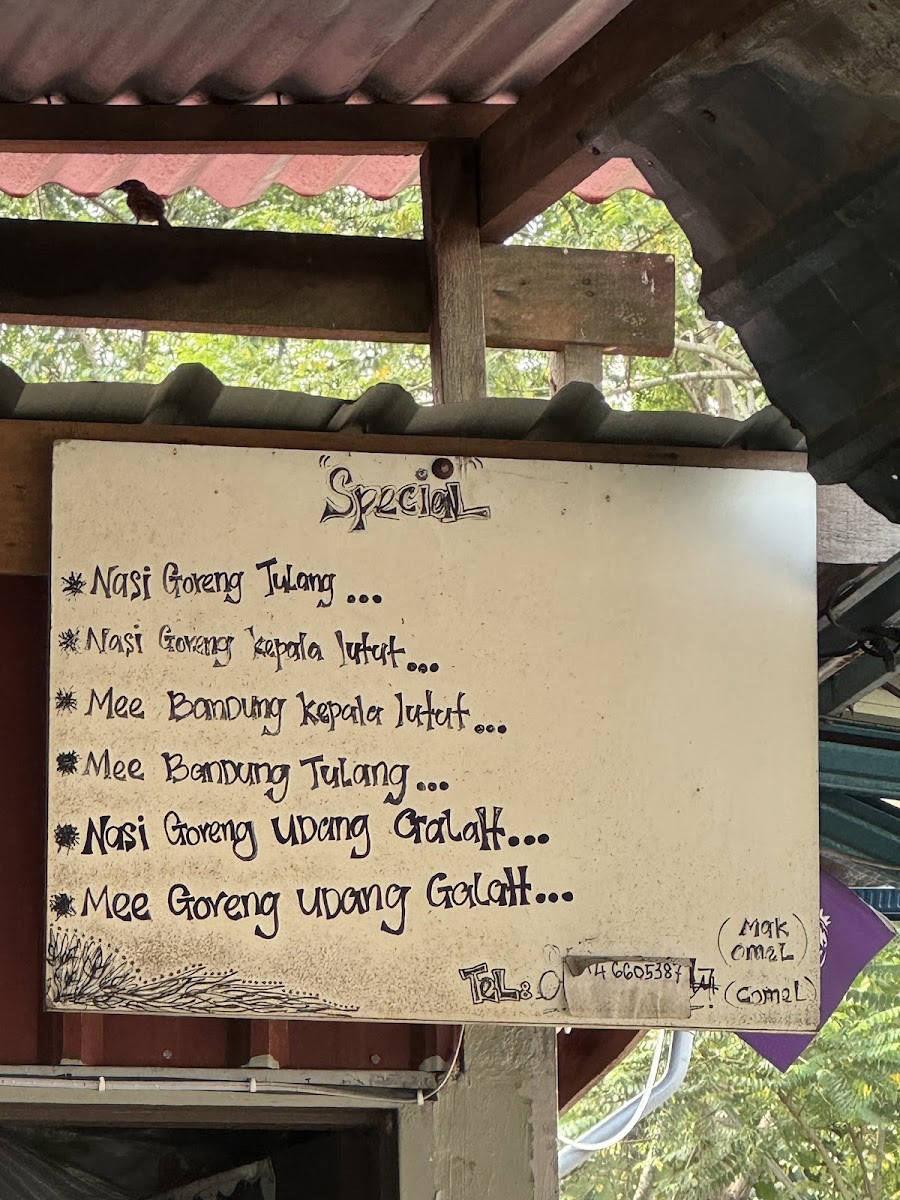 "Special"
* Nasi Goreng Tulang ...
* Nasi Goreng kepala lutut...
* Mee Bandung kepala lutut...
* Mee Bandung Tulang ...
* Nasi Goreng Udang Galah...
* Mee Goreng Udang Galah...
(Mak
omel)
Tel: 0 4 6605387
(Gomel)